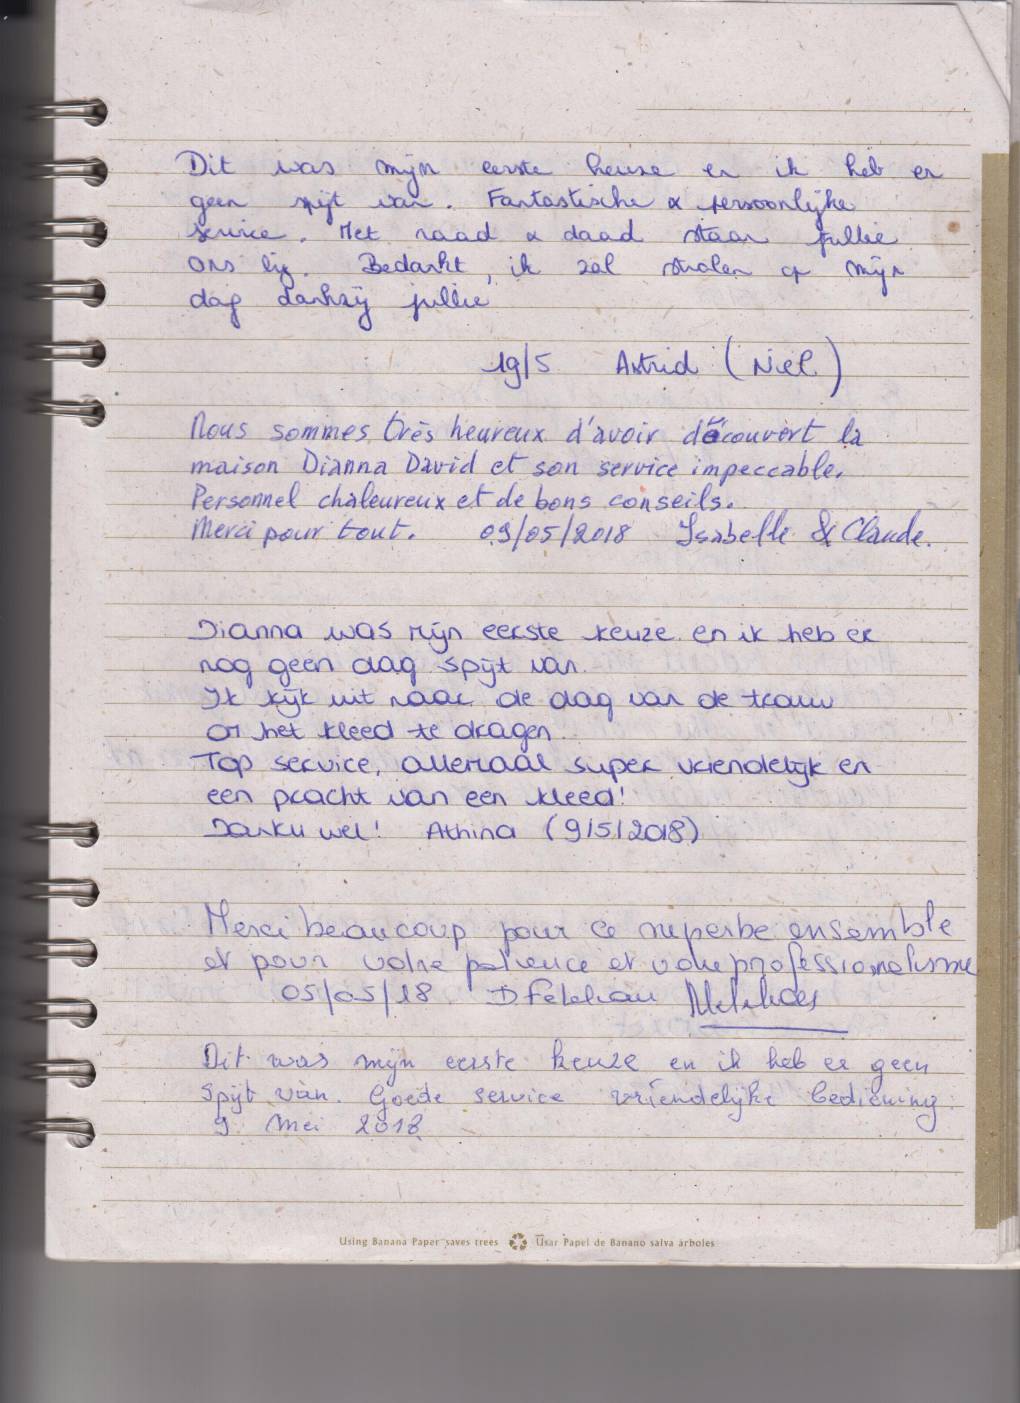 Dit was mijn eerste keuze en ik heb er
geen spijt van. Fantastische & persoonlijke
service. Met raad & daad staan jullie
ons bij. Bedankt, ik zal stralen op mijn
dag dankzij jullie
19/5 Astrid (Niel)
Nous sommes très heureux d'avoir découvert la
maison Dianna David et son service impeccable.
Personnel chaleureux et de bons conseils.
Merci pour tout. 09/05/2018 Isabelle & Claude.
Dianna was mijn eerste keuze en ik heb er
nog geen dag spijt van.
Ik kijk uit naar de dag van de trouw
om het kleed te dragen.
Top service, allemaal super vriendelijk en
een pracht van een kleed!
Danku wel! Athina (9/5/2018)
Merci beaucoup pour ce superbe ensemble
et pour votre patience et votre professionalisme
05/05/18
Dit was mijn eerste keuze en ik heb er geen
spijt van. Goede service vriendelijke bediening.
9 Mei 2018
Using Banana Paper saves trees Usar Papel de Banano salva árboles